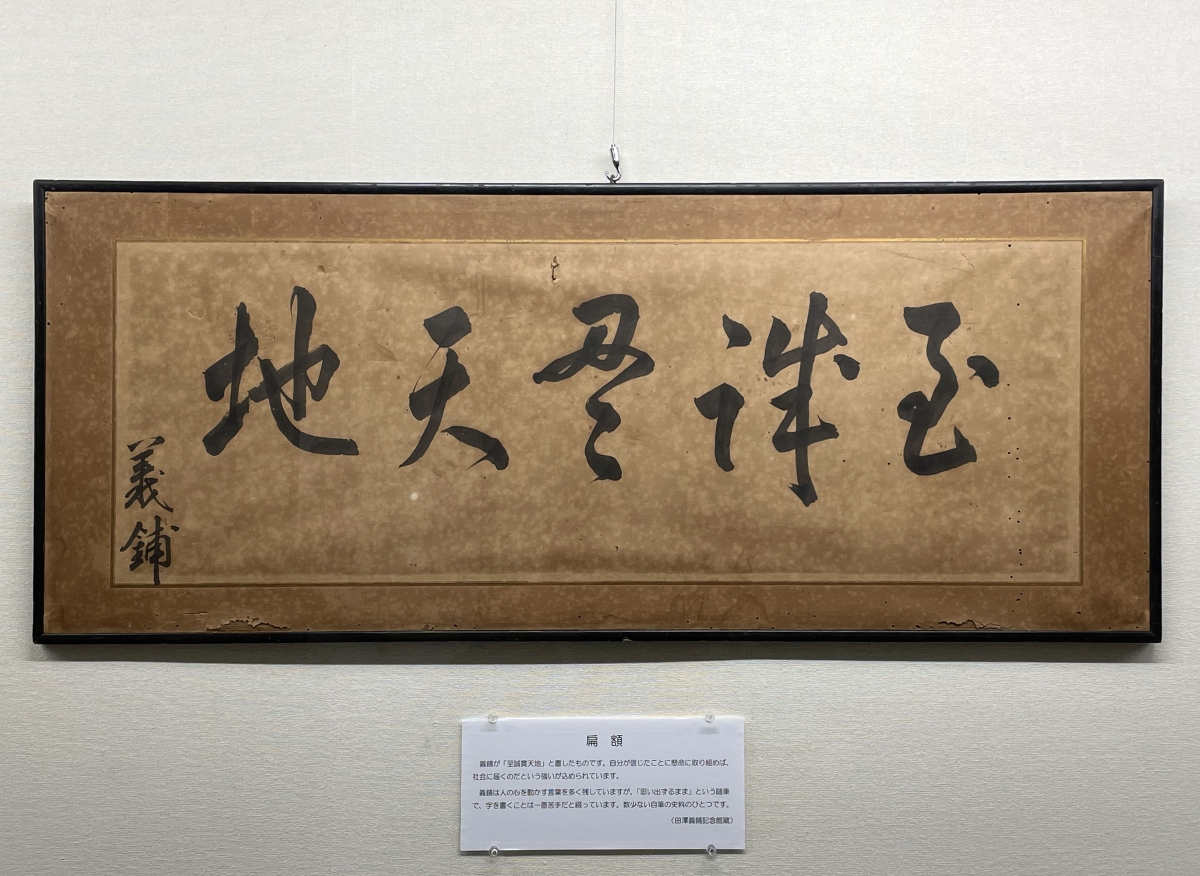 至誠貫天地
義鋪
扁額
義鋪が「至誠貫天地」と書したものです。自分が信じたことに懸命に取り組めば、
社会に届くのだという強いが込められています。
義鋪は人の心を動かす言葉を多く残していますが、「思い出ずるまま」という随筆
で、字を書くことは一番苦手だと綴っています。数少ない自筆の史料のひとつです。
(田澤義鋪記念館蔵)